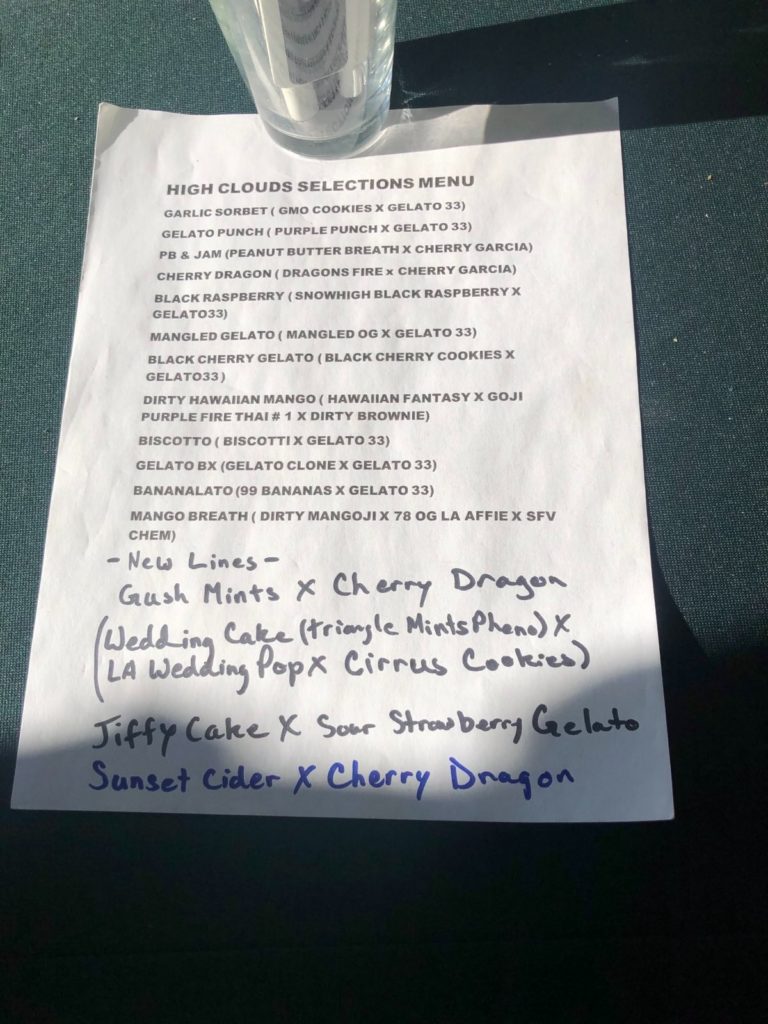 HIGH CLOUDS SELECTIONS MENU
GARLIC SORBET ( GMO COOKIES X GELATO 33)
GELATO PUNCH ( PURPLE PUNCH X GELATO 33)
PB & JAM (PEANUT BUTTER BREATH X CHERRY GARCIA)
CHERRY DRAGON ( DRAGONS FIRE x CHERRY GARCIA)
BLACK RASPBERRY ( SNOWHIGH BLACK RASPBERRY X
GELATO33)
MANGLED GELATO ( MANGLED OG X GELATO 33)
BLACK CHERRY GELATO ( BLACK CHERRY COOKIES X
GELATO33 )
DIRTY HAWAIIAN MANGO ( HAWAIIAN FANTASY X GOJI
PURPLE FIRE THAI # 1 X DIRTY BROWNIE)
BISCOTTO ( BISCOTTI X GELATO 33)
GELATO BX (GELATO CLONE X GELATO 33)
BANANALATO (99 BANANAS X GELATO 33)
MANGO BREATH ( DIRTY MANGOJI X 78 OG LA AFFIE X SFV
CHEM)
- New Lines -
Gush Mints X Cherry Dragon
(Wedding Cake (triangle Mints Pheno) X
LA Wedding Pop X Cirrus Cookies)
Jiffy Cake X Sour Strawberry Gelato
Sunset Cider X Cherry Dragon